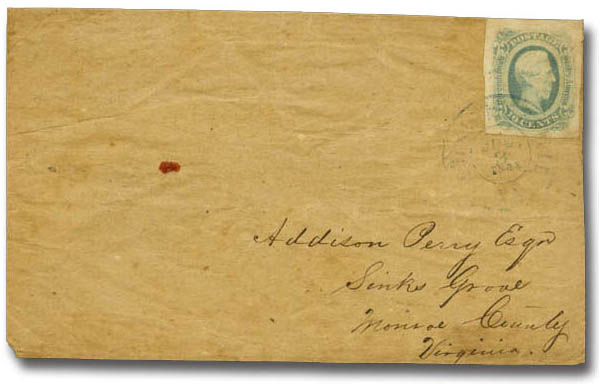 POSTAGE
10 CENTS
Addison Perry Esqr
Sinks Grove
Monroe County
Virginia.